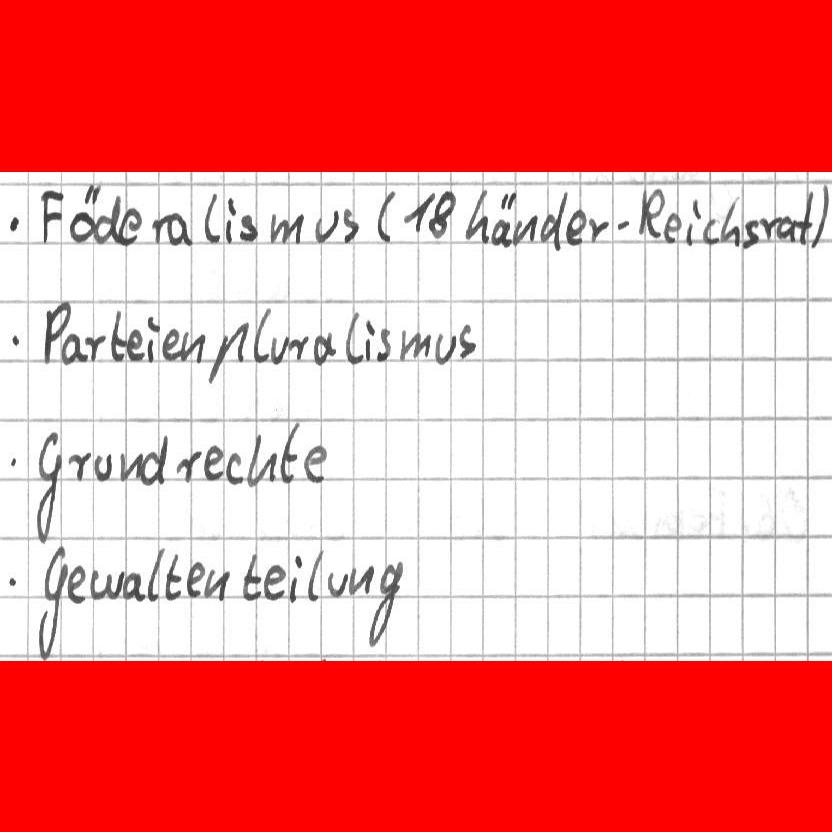 · Föderalismus (18 Länder-Reichsrat)
· Parteienpluralismus
· Grundrechte
· Gewaltenteilung